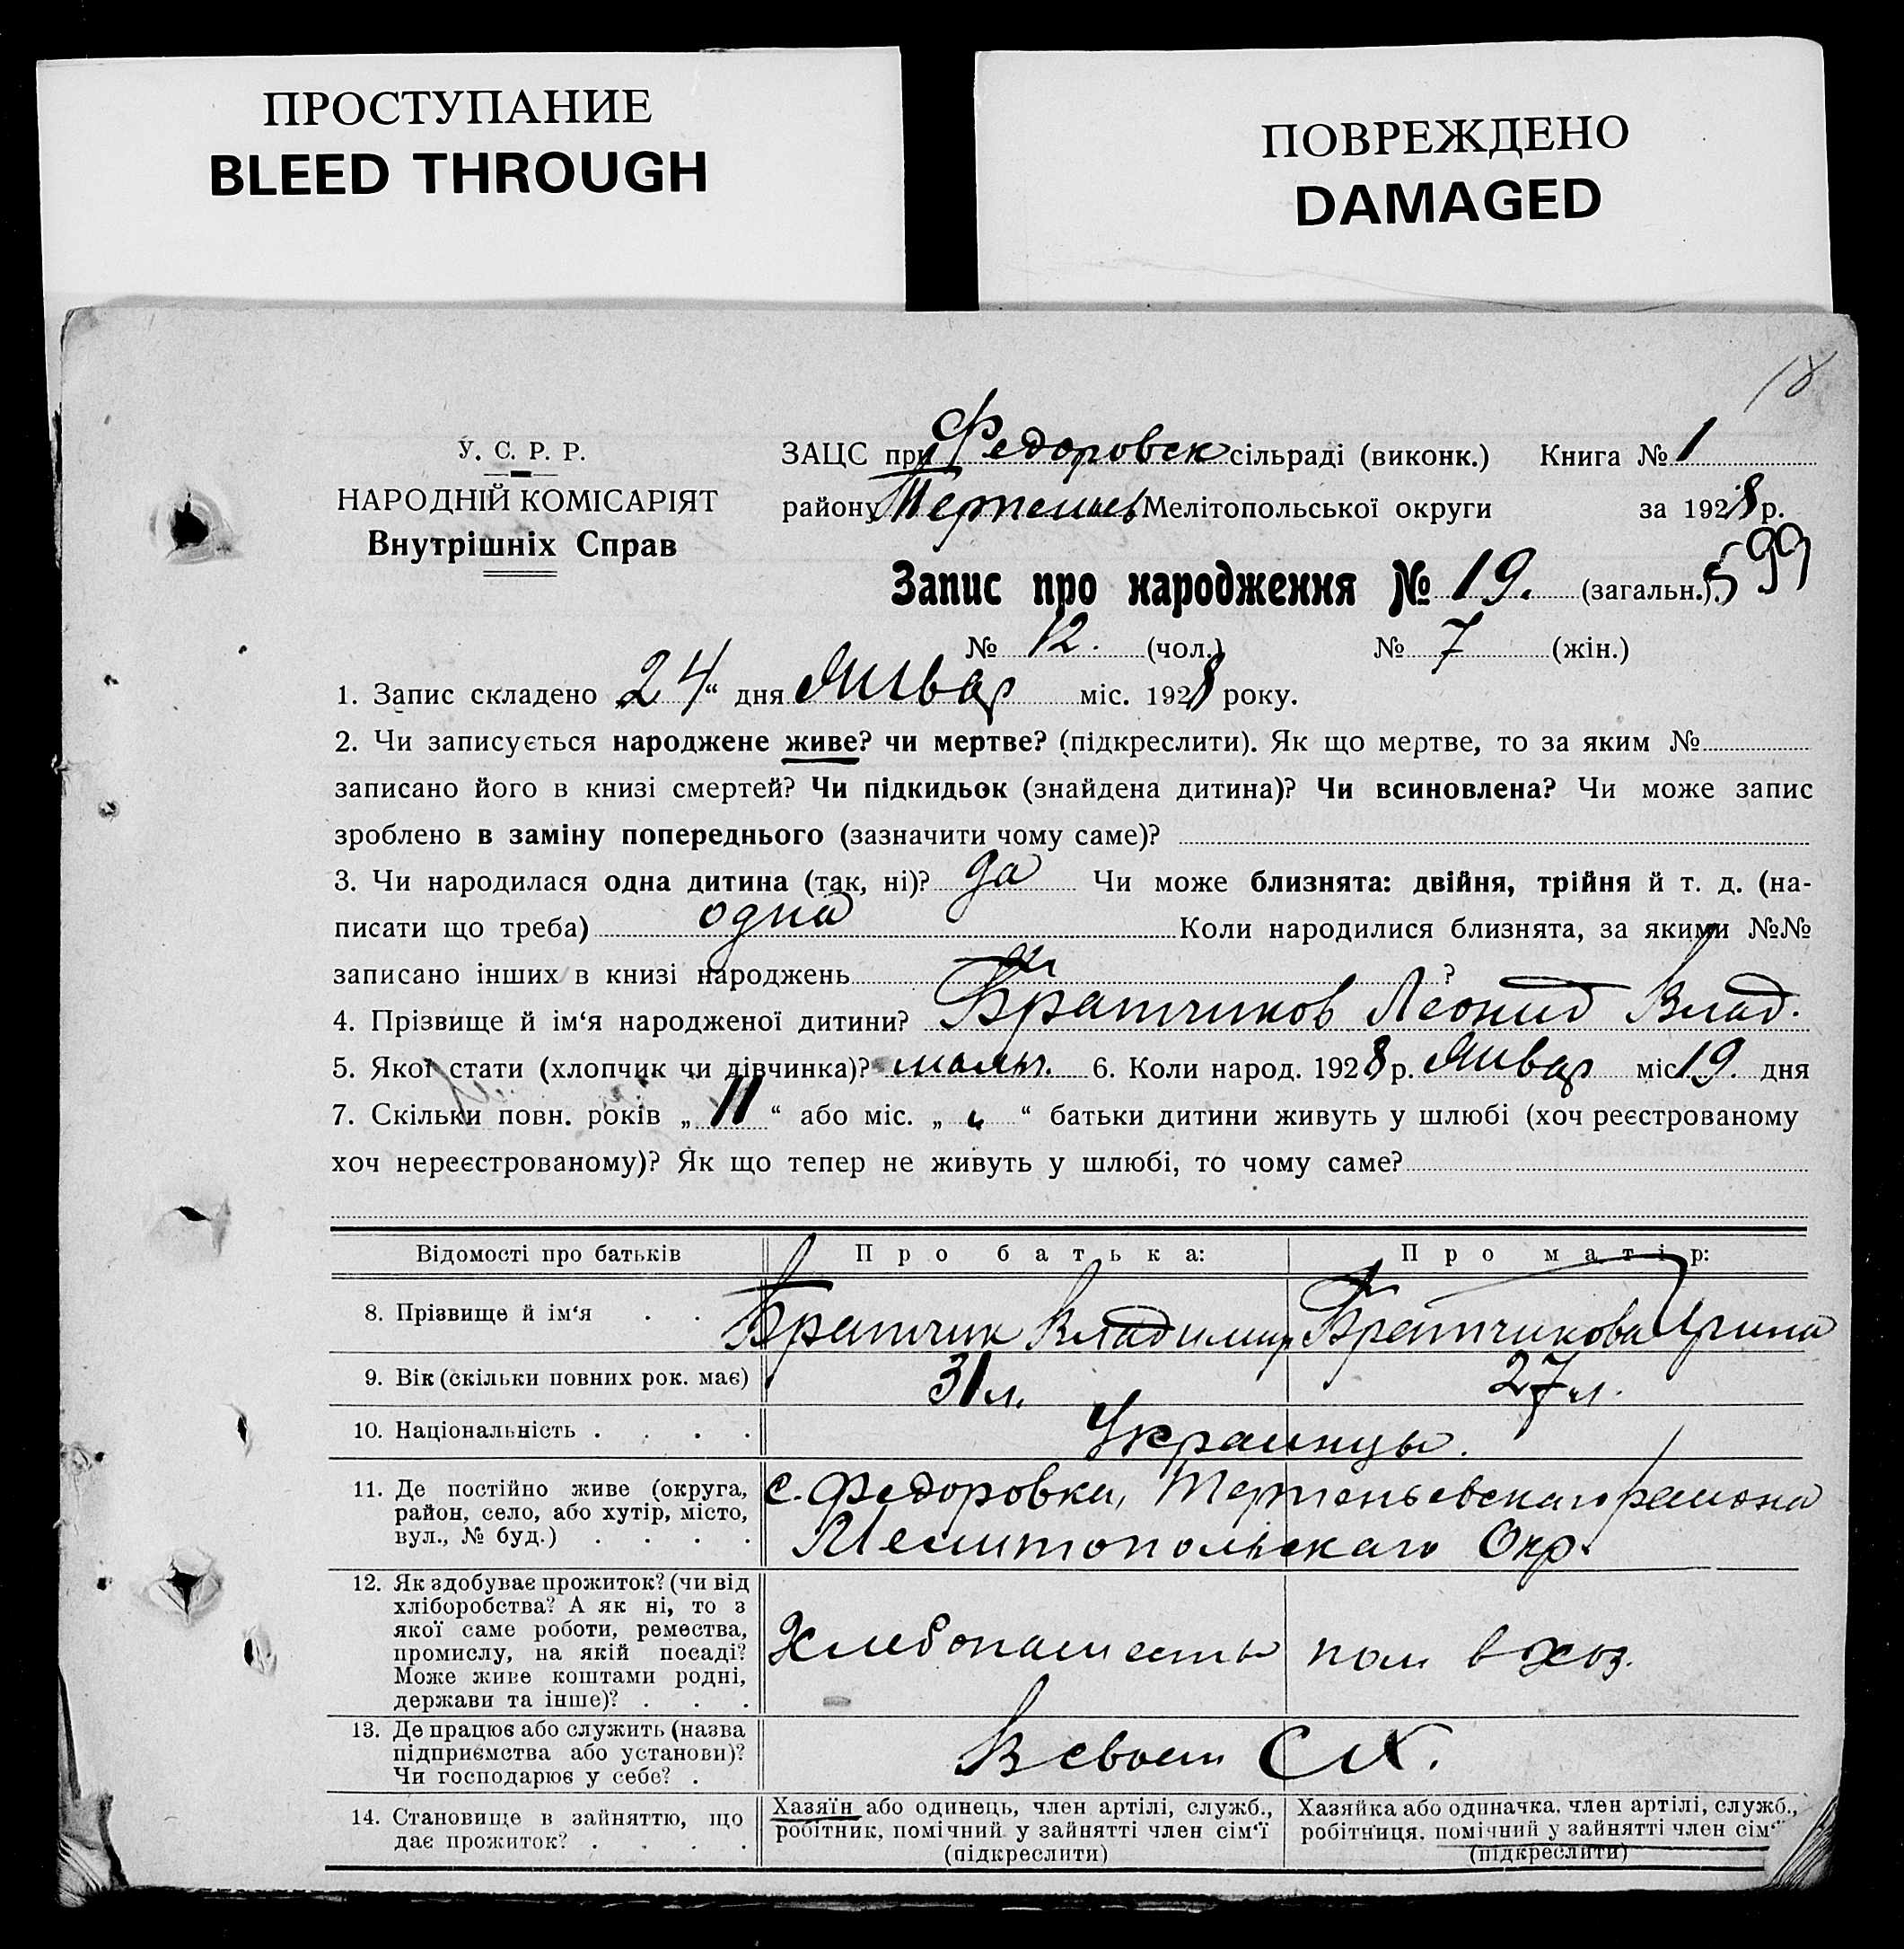 ПРОСТУПАНИЕ
BLEED THROUGH
ПОВРЕЖДЕНО
DAMAGED
18
У. С. Р. Р.
НАРОДНІЙ КОМІСАРІЯТ
Внутрішніх Справ
ЗАЦС при Федоровск сільраді (виконк.) Книга № 1
району Терпеньев Мелітопольської округи за 1928 р.
Запис про народження № 19. (загальн.) 599
№ 12. (чол.) № 7 (жін.)
1. Запис складено 24 “ дня Январ міс. 1928 року.
2. Чи записується народжене живе? чи мертве? (підкреслити). Як що мертве, то за яким №
записано його в книзі смертей? Чи підкидьок (знайдена дитина)? Чи всиновлена? Чи може запис
зроблено в заміну попереднього (зазначити чому саме)?
3. Чи народилася одна дитина (так, ні)? да Чи може близнята: двійня, трійня й т. д. (на-
писати що треба) одна Коли народилися близнята, за якими №№
записано інших в книзі народжень ?
4. Прізвище й ім‘я народженої дитини? Братчиков Леонид Влад.
5. Якої стати (хлопчик чи дівчинка)? мальч. 6. Коли народ. 1928 р. Январ міс 19. дня
7. Скільки повн. років „ 11 “ або міс. „ “ батьки дитини живуть у шлюбі (хоч реєстрованому
хоч нереєстрованому)? Як що тепер не живуть у шлюбі, то чому саме?
Відомості про батьків Про батька: Про матір:
8. Прізвище й ім‘я Братчик Владимир Братчикова Ирина
9. Вік (скільки повних рок. має) 31 л. 27 л.
10. Національність Украинцы.
11. Де постійно живе (округа, район, село, або хутір, місто, вул., № буд.) с. Федоровка, Терпеньевскаго района
Мелитопольскаго Окр.
12. Як здобуває прожиток? (чи від
хліборобства? А як ні, то з
якої саме роботи, ремества,
промислу, на якій посаді?
Може живе коштами родні,
держави та інше)?
Хлебопашество пом в хоз.
13. Де працює або служить (назва
підприємства або установи)?
Чи господарює у себе?
В своем СХ.
14. Становище в зайняттю, що
дає прожиток?
Хазяїн або одинець, член артілі, служб.,
робітник, помічний у зайнятті член сім‘ї
(підкреслити)
Хазяйка або одиначка. член артілі, служб.,
робітниця. помічний у зайнятті член сім‘ї
(підкреслити)